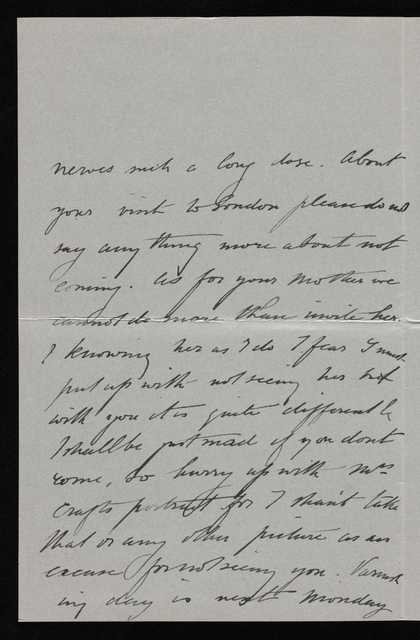 nerves such a long dose. About
your visit to London please do not
say anything more about not
coming. As for your Mother we
cannot do more than invite her.
I knowing her as I do I fear I must
put up with not seeing her but
with you it is quite different &
I shall be just mad if you don't
come, so hurry up with Mrs
Crafts portrait for I shan't take
that or any other picture as an
excuse for not seeing you. Varnish
ing day is next Monday